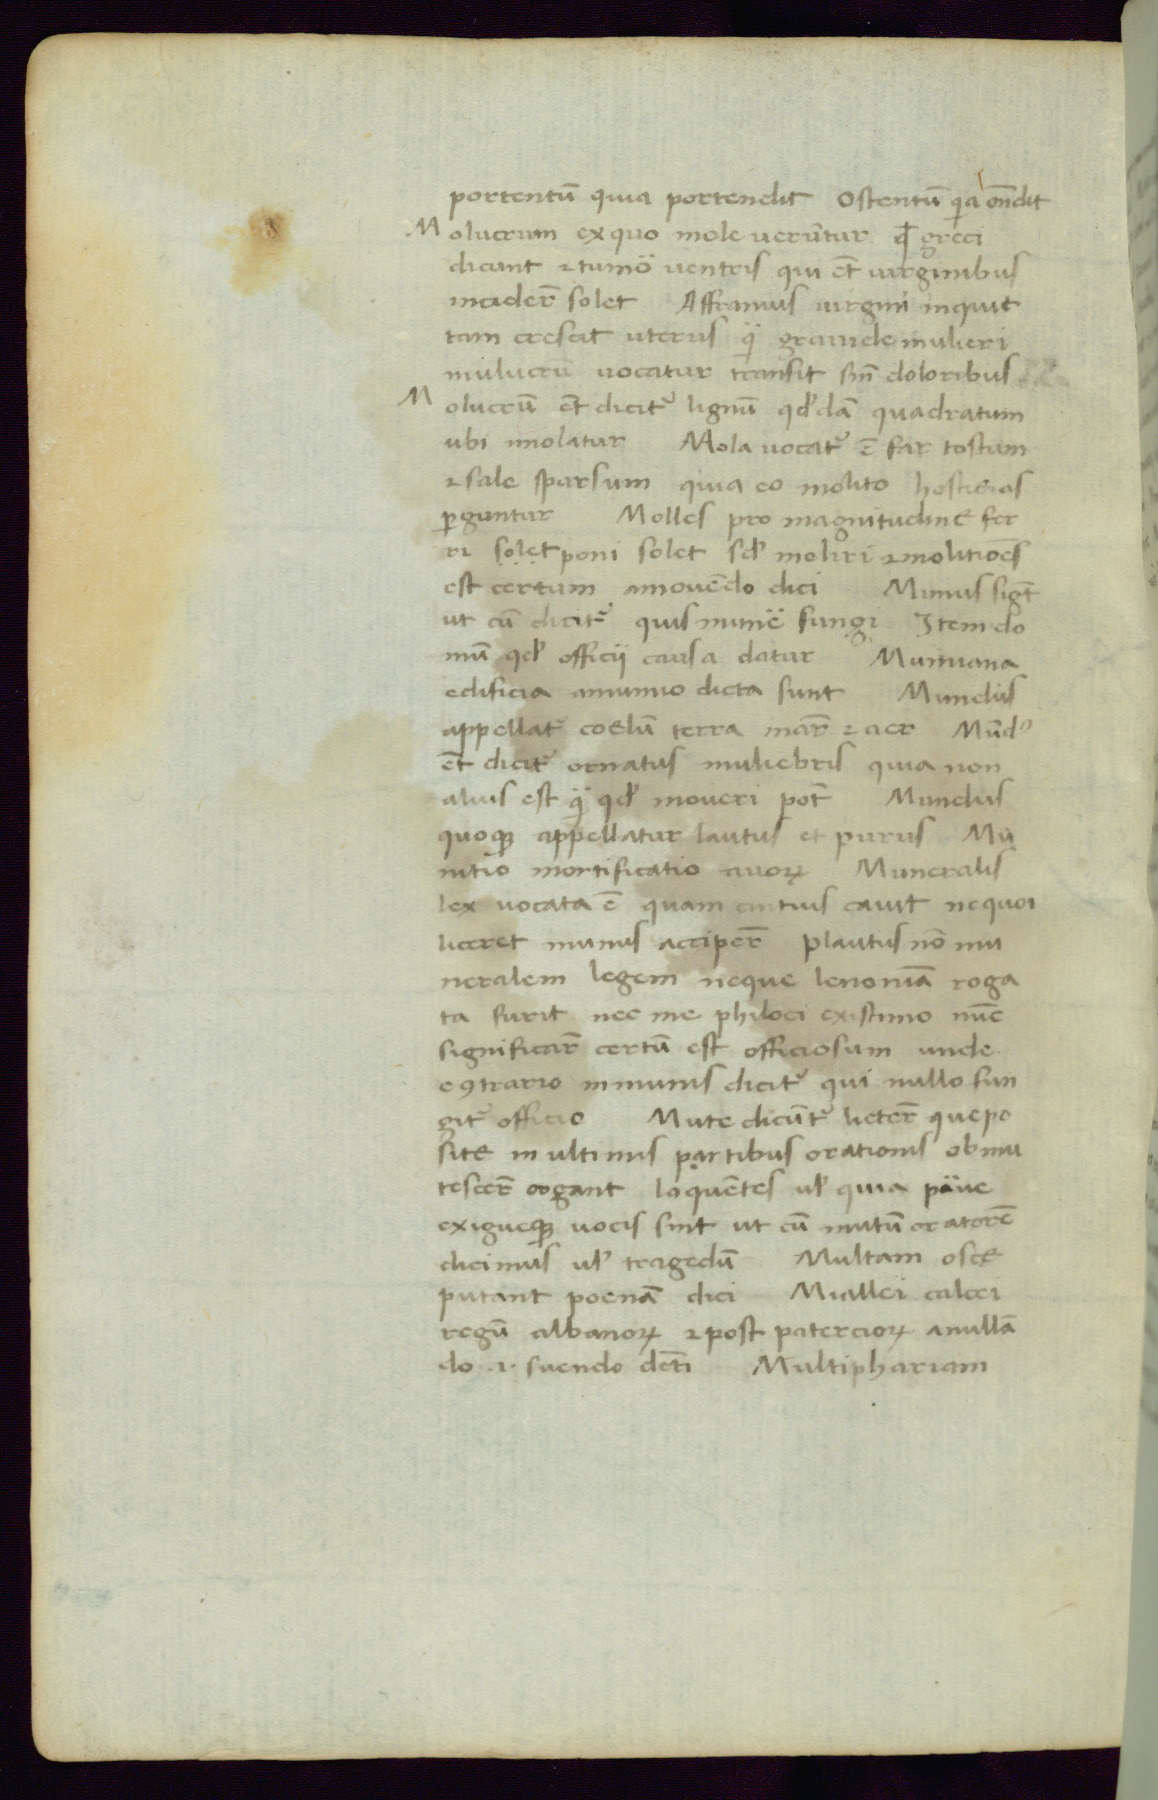 portentū quia portendit Ostentū q̄a on̄dit
Molucrum ex quo mole verūtur qđ greci
dicunt ⁊ tumō ventris qui et̄ virginibus
incider̄ solet Affranius virgini inquit
tam crescit uterus q̄ gravide mulieri
mulucrū vocatur transit sin̄ doloribus
Molucrū et̄ dicit᷑ lignū qđdā quadratum
ubi imolatur Mola vocat᷑ ē far tostum
⁊ sale sparsum quia eo molito hostie as
ꝑguntur Molles pro magnitudine fer
ri solet poni solet sđ moliri ⁊ molitiōes
est certum amovēdo dici Munus sigt̄
ut cū dicit᷑ quis munē fungi Item do
nuū qđ officii causa datur Munuana
edificia amunio dicta sunt Mundus
appellat᷑ coelū terra mar̄ ⁊ aer Mūdꝰ
et̄ dicit᷑ ornatus muliebris quia non
alius est q̄ qđ moveri pot̄ Mundus
quoqꝫ appellatur lautus et purus Mu
nitio mortificatio civoꝝ Muneralis
lex vocata ē quam cintius cavit nequoi
liceret munus acciper̄ plautus nō mu
neralem legem neque lenoniā roga
ta fuerit nec me philoci existimo mūe
significar̄ certū est officiosum unde
e ꝯtrario inmunis dicit᷑ qui nullo fun
git᷑ officio Mute dicūt᷑ litter̄ que po
site in ultimis partibus orationis obmu
tescer̄ cogant loquētes ul̄ quia pāve
exigueqꝫ vocis sint ut cū mutū oratorē
dicimus ul̄ tragedū Multam osce
putant poenā dici Mullei calcei
regū albanoꝝ ⁊ post patercioꝝ amullā
do .i. suendo det̄i Multiphariam